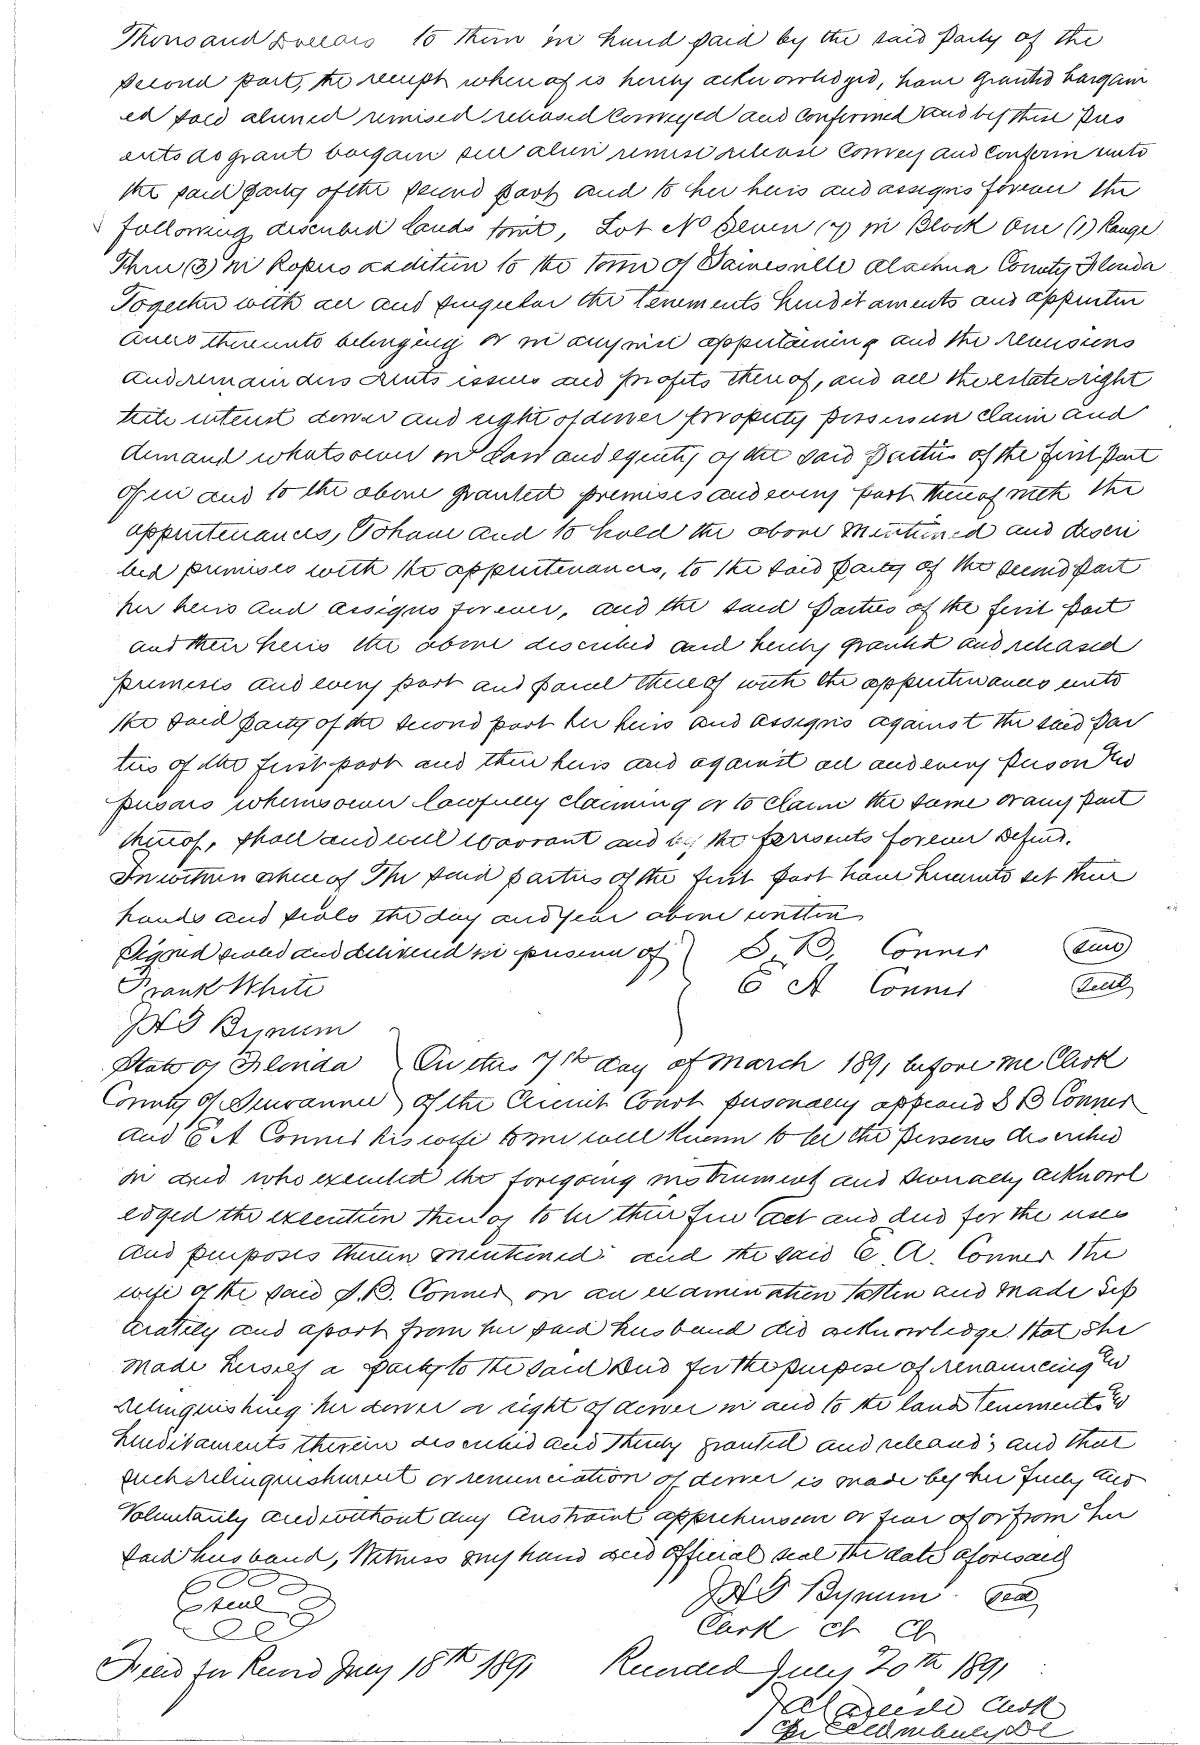 Thousand Dollars to them in hand paid by the said Party of the
second part, the receipt whereof is hereby acknowledged, have granted bargain
ed sold aliened remised released conveyed and confirmed and by these pres
ents do grant bargain sell alien remise release convey and confirm unto
the said party of the second part and to her heirs and assigns forever the
following described lands towit, Lot No Seven (7) in Block One (1) Range
Three (3) in Ropers addition to the town of Gainesville Alachua County Florida
Together with all and singular the tenements hereditaments and appurten
ances thereunto belonging or in anywise appertaining and the revisions
and remainders rents issues and profits thereof, and all the estate right
title interest dower and right of dower property possession claim and
demand whatsoever in law and equity of the said parties of the first part
of in and to the above granted premises and every part thereof with the
appurtenances, To have and to hold the above mentioned and descri
bed premises with the appurtenances, to the said party of the second part
her heirs and assigns forever, and the said Parties of the first part
and their heirs the above described and hereby granted and released
premises and every part and parcel thereof with the appurtenances unto
the said party of the second part her heirs and assigns against the said par
ties of the first part and their heirs and against all and every person and
persons whomsoever lawfully claiming or to claim the same or any part
thereof, shall and will warrant and by the presents forever Defend.
In witness whereof The said parties of the first part have hereunto set their
hands and seals the day and year above written
Signed sealed and delivered in presence of S. B. Conner Seal
Frank White E A Conner Seal
Bynum
State of Florida On this 7th day of March 1891 before me Clerk
County of Suwannee of the Circuit Court personally appeared S B Conner
and E A Conner his wife to me well known to be the persons described
in and who executed the foregoing instrument and severally acknowl
edged the execution thereof to be their free act and deed for the uses
and purposes therein mentioned: and the said E. A. Conner the
wife of the said S. B. Conner on an examination taken and made sep
arately and apart from her said husband did acknowledge that she
made herself a party to the said Deed for the purpose of renouncing and
relinquishing her dower or right of dower in and to the lands Tenements and
hereditaments therein described and thereby granted and released; and that
such relinquishment or renunciation of dower is made by her freely and
Voluntarily and without any constraint apprehension or fear of or from her
said husband, Witness my hand and official seal the date aforesaid
Seal Bynum. Seal
Clerk Ct Ct
Filed for Record July 18th 1891 Recorded July 20th 1891
Clerk